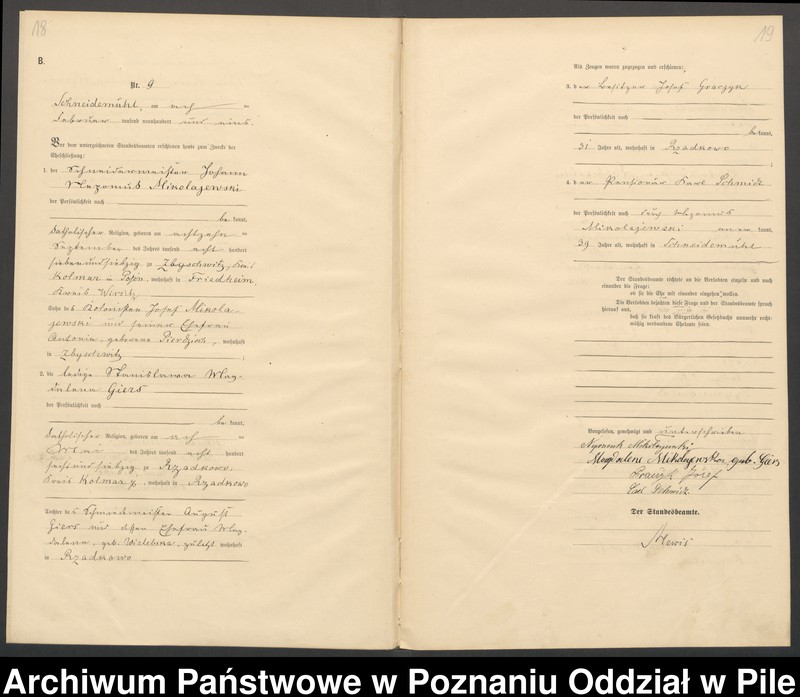 18
B.
Nr. 9
Schneidemühl, am
Februar tausend neunhundert und eins.
Vor dem unterzeichneten Standesbeamten erschienen heute zum Zwecke der
Eheschließung:
1. der Schneidermeister Johann
Nepomuk Mikolajewski
der Persönlichkeit nach
be kannt,
katholischer Religion, geboren am achtzehn
September des Jahres tausend acht hundert
siebenundsiebzig zu Zbyschwitz, Kreis
Kolmar in Posen, wohnhaft in Friedheim,
Kreis Wirsitz
Sohn des Kolonisten Josef Mikola-
jewski und seiner Ehefrau
Antonie, geborene wohnhaft
in Zbyschewitz
2. die ledige Stanislawa Mag-
dalena Giers
der Persönlichkeit nach
be kannt,
katholischer Religion, geboren am
Mai des Jahres tausend acht hundert
sechsundsiebzig zu Rzadkowo
Kreis Kolmar, wohnhaft in Rzadkowo
Tochter des Schmiedemeister August
Giers und dessen Ehefrau Mag-
dalena, geb. zuletzt wohnhaft
in Rzadkowo
19
Als Zeugen waren zugezogen und erschienen:
3. der Besitzer Josef Graczyk
der Persönlichkeit nach
be kannt,
31 Jahre alt, wohnhaft in Rzadkowo
4. der Pensionär Karl Schmidt
der Persönlichkeit nach durch Nepomuk
Mikolajewski anerkannt,
39 Jahre alt, wohnhaft in Schneidemühl
Der Standesbeamte richtete an die Verlobten einzeln und nach
einander die Frage:
ob sie die Ehe mit einander eingehen wollen.
Die Verlobten bejahten diese Frage und der Standesbeamte sprach
hierauf aus,
daß sie kraft des Bürgerlichen Gesetzbuchs nunmehr recht-
mäßig verbundene Eheleute seien.
Vorgelesen, genehmigt und unterschrieben
Nepomuk Mikołajewski
Magdalena Mikołajewska geb. Giers
Graczyk Józef
Carl Schmidt.
Der Standesbeamte.
Mewis
Archiwum Państwowe w Poznaniu Oddział w Pile